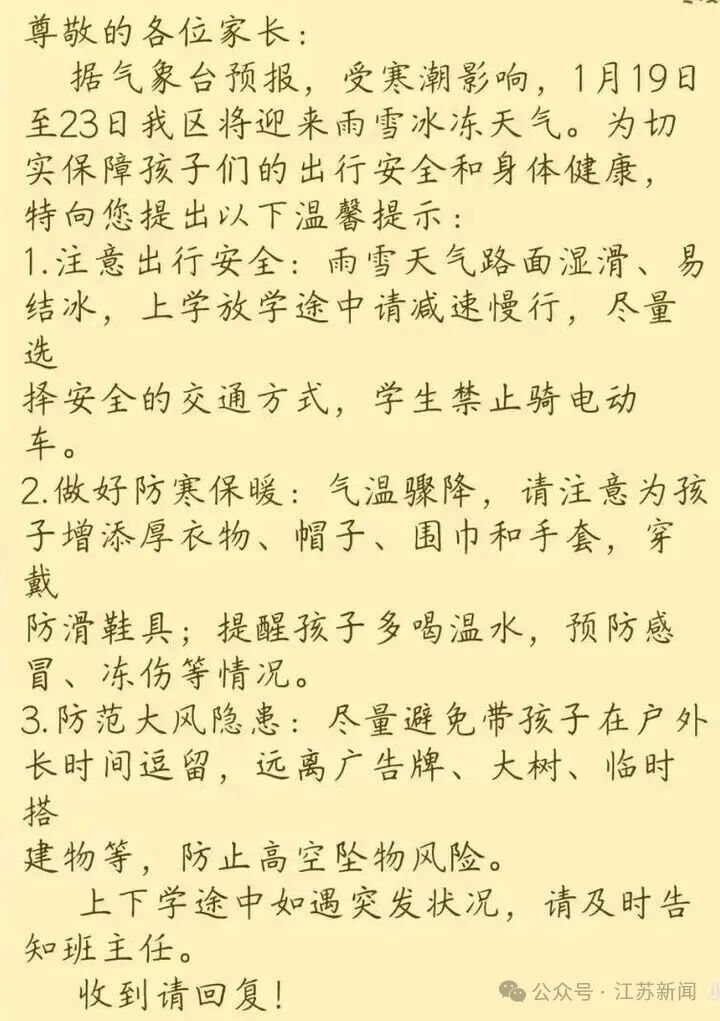 尊敬的各位家长：
据气象台预报，受寒潮影响，1月19日
至23日我区将迎来雨雪冰冻天气。为切
实保障孩子们的出行安全和身体健康，
特向您提出以下温馨提示：
1.注意出行安全：雨雪天气路面湿滑、易
结冰，上学放学途中请减速慢行，尽量
选
择安全的交通方式，学生禁止骑电动
车。
2.做好防寒保暖：气温骤降，请注意为孩
子增添厚衣物、帽子、围巾和手套，穿
戴
防滑鞋具；提醒孩子多喝温水，预防感
冒、冻伤等情况。
3.防范大风隐患：尽量避免带孩子在户外
长时间逗留，远离广告牌、大树、临时
搭
建物等，防止高空坠物风险。
上下学途中如遇突发状况，请及时告
知班主任。
收到请回复！
公众号·江苏新闻